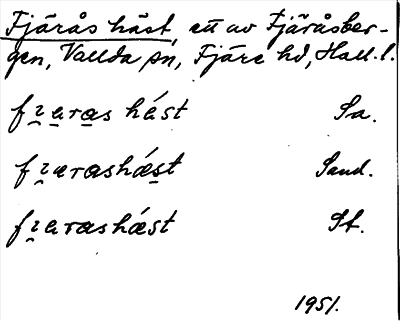 Fjärås häst, ett av Fjäråsber-
gen, Vallda sn, Fjäre hd, Hall. l.
fɿaras hást Sa.
fɿarashǽst Sand.
fɿarashǽst St.
1951.